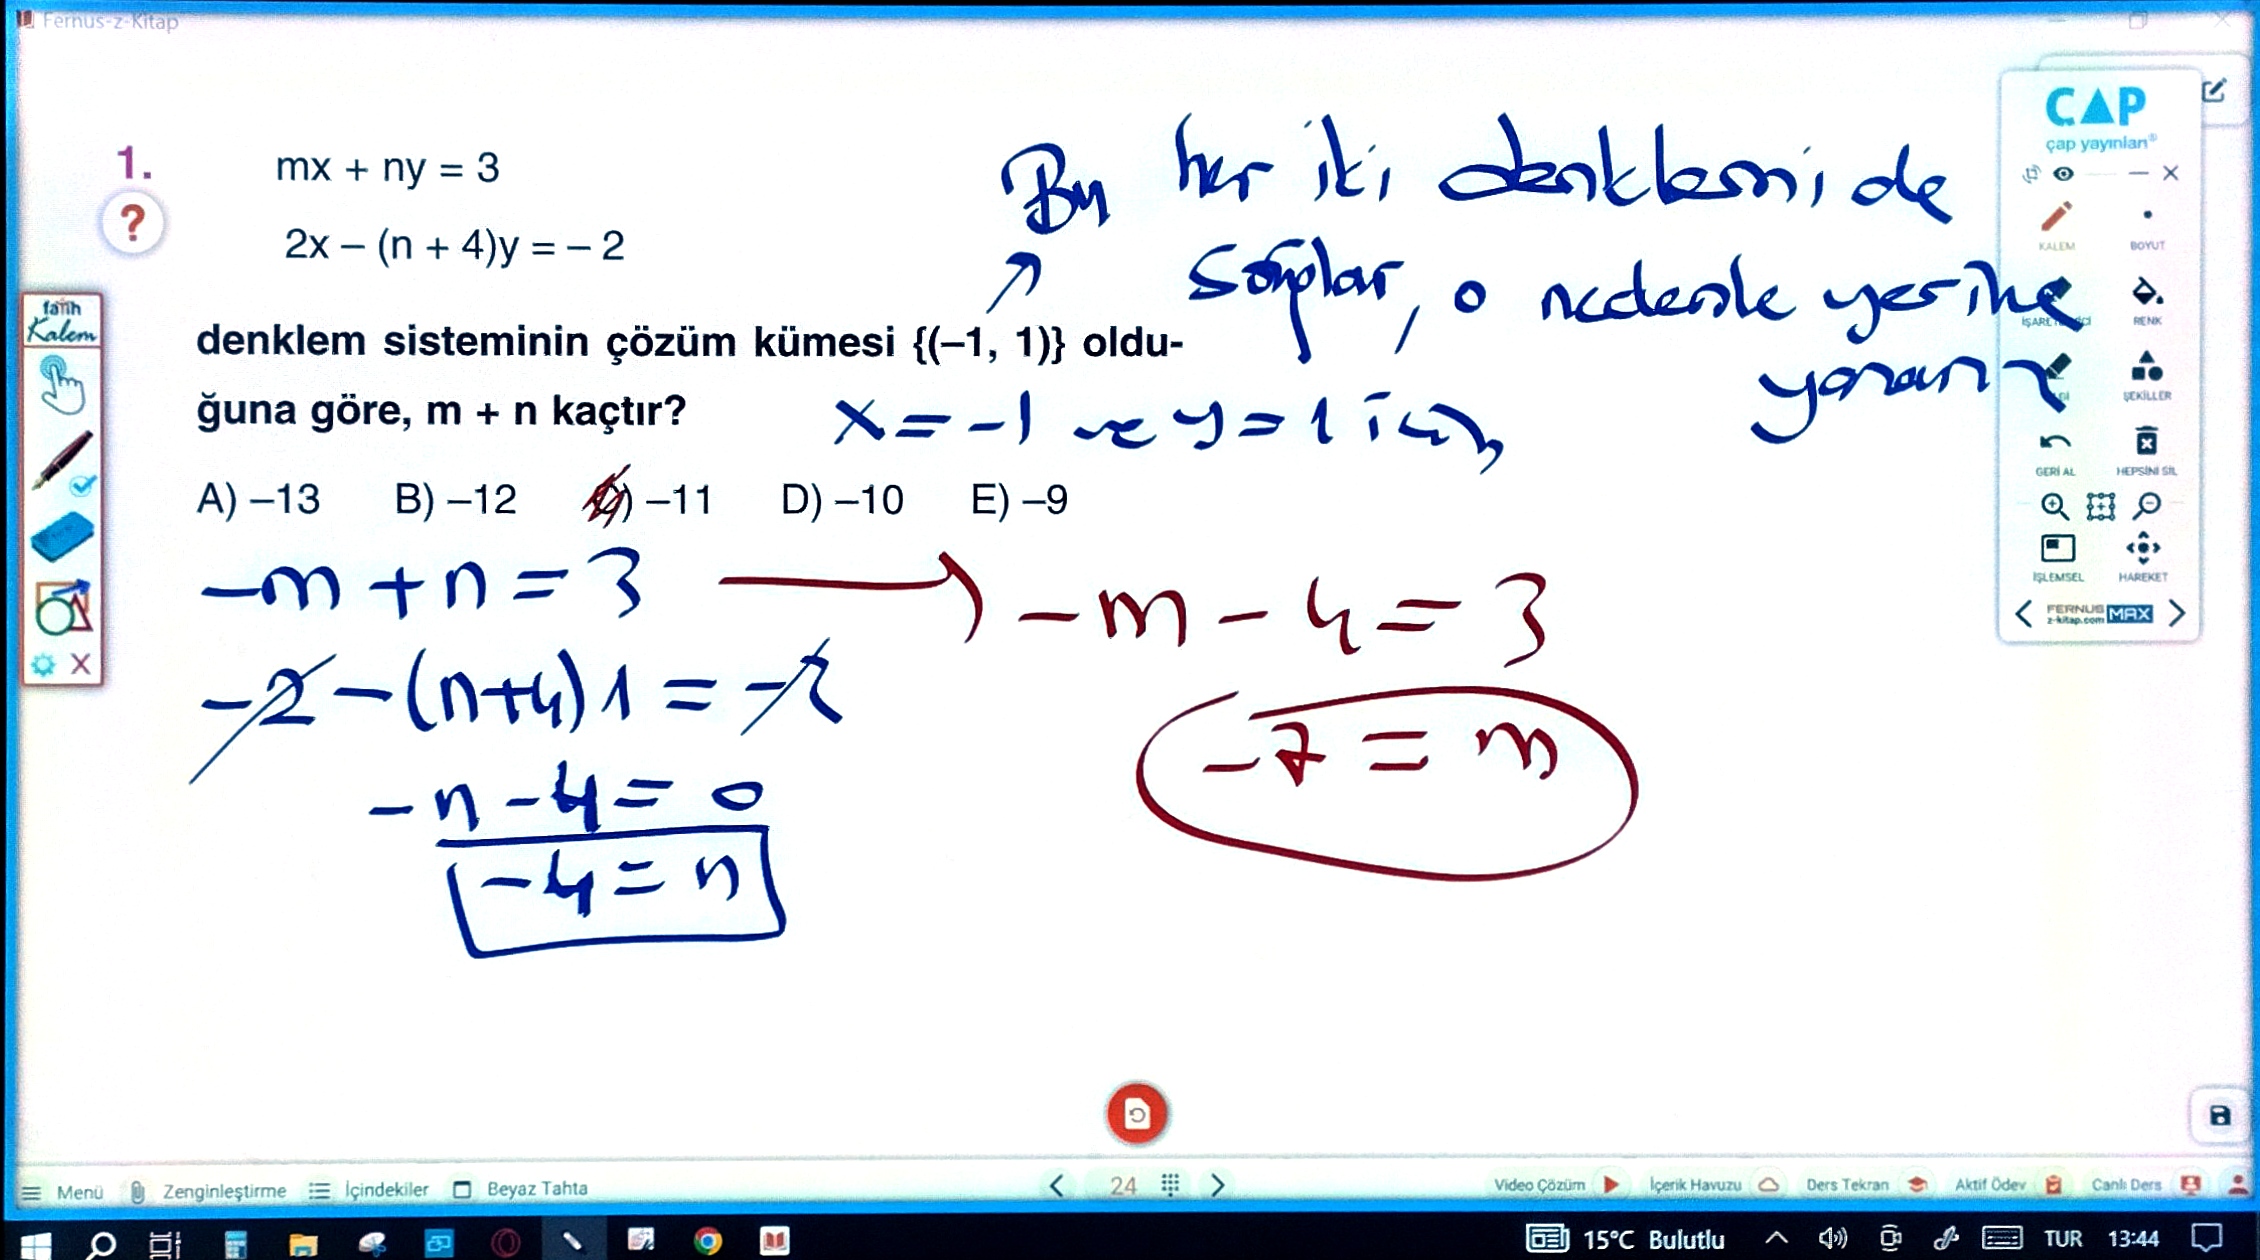 Fernus-z-Kitap
1.
mx + ny = 3
2x – (n + 4)y = – 2
denklem sisteminin çözüm kümesi {(–1, 1)} oldu-
ğuna göre, m + n kaçtır?
A) –13 B) –12 C) –11 D) –10 E) –9
Bu her iki denklemi de
sağlar, o nedenle yerine
yazarız
x = -1 ve y = 1 için
-m + n = 3
-2 - (n+4) 1 = -2
-n - 4 = 0
-4 = n
-m - 4 = 3
-7 = m
fatih
Kalem
ÇAP
çap yayınları®
KALEM BOYUT
RENK
ŞEKİLLER
GERİ AL HEPSİNİ SİL
İŞLEMSEL HAREKET
FERNUS
z-kitap.com MAX
Menü Zenginleştirme İçindekiler Beyaz Tahta
24
Video Çözüm İçerik Havuzu Ders Tekran Aktif Ödev Canlı Ders
15°C Bulutlu TUR 13:44